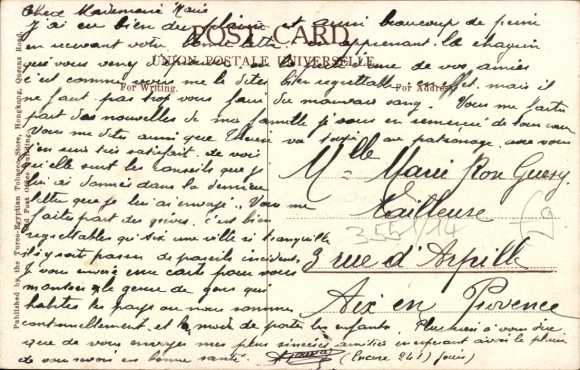 Chère Mademoiselle Marie
J'ai eu bien du plaisir et aussi beaucoup de peine
POST CARD
en recevant votre bonne lettre apprenant le chagrin
UNION POSTALE UNIVERSELLE
que vous venez de vos amies
c'est comme vous me le dites bien regrettable en effet, mais il
For Writing. For Address.
ne faut pas trop vous faire du mauvais sang. Vous me faites
part des nouvelles de ma famille je vous en remercie de tout cœur
Vous me dites aussi que va toujours au patronage avec vous
j'en suis très satisfait de voir
qu'elle suit les conseils que je
lui ai donnés dans la dernière
lettre que je lui ai envoyé. Vous me
faites part des grèves c'est bien
regrettables qui six une ville si tranquille
il s'y soit passer de pareils incidents
Je vous envoie une carte pour vous
montrer le genre de gens qui
habites les pays ou nous sommes
continuellement et le mode de porter les enfants. Plus rien à vous dire
que de vous envoyer mes plus sincères amitiés en espérant avoir le plaisir
de vous revoir en bonne santé (Encore 241 jours)
Mlle Marie Rose
Tailleuse
3 rue d'Arpille
Aix en Provence
355/14
Published by the Turco-Egyptian Tobacco Store, Hongkong, Queens Road,